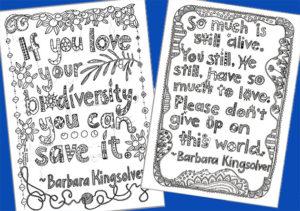 If you love
your
biodiversity,
you can
save it.
~Barbara Kingsolver
So much is
still alive.
You still. We
still, have so
much to love.
Please don't
give up on
this world.
~Barbara Kingsolver